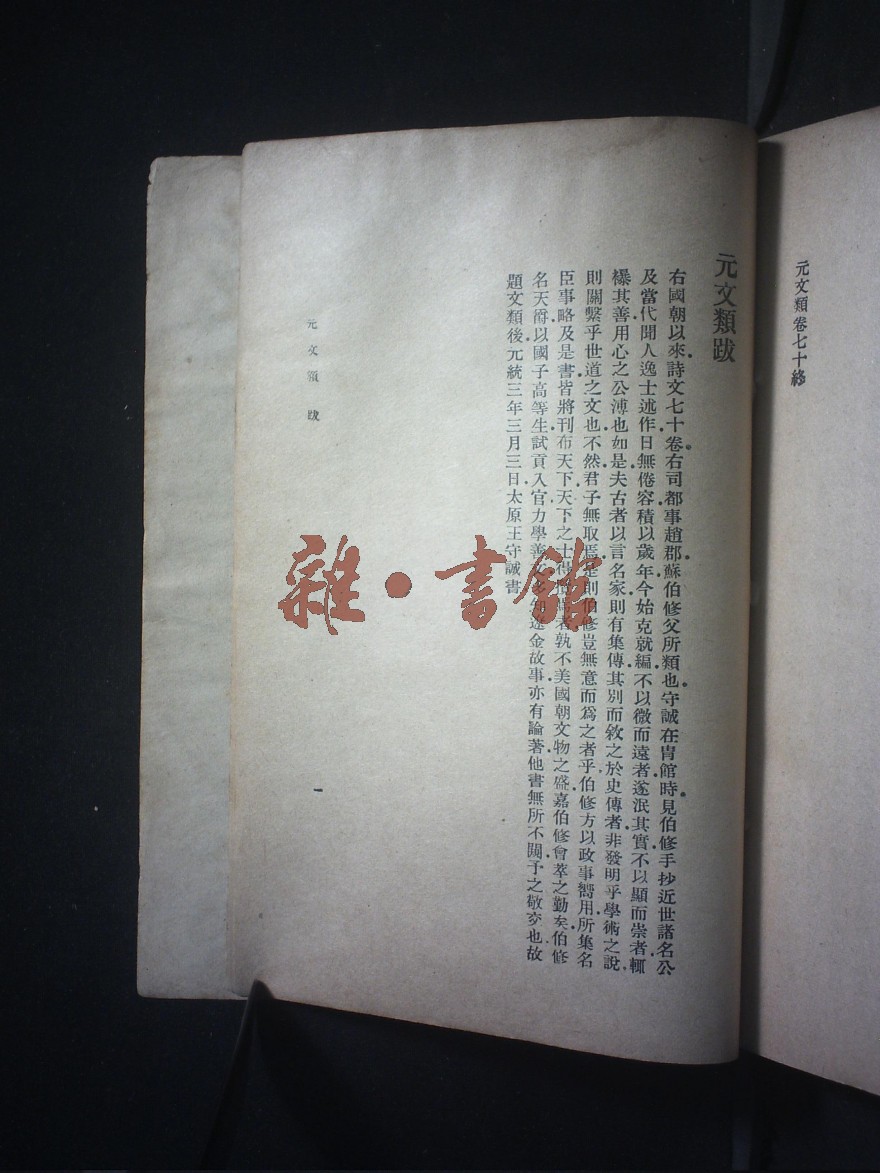 元文類卷七十終
元文類跋
右國朝以來詩文七十卷右司都事趙郡蘇伯修父所類也守誠在胄館時見伯修手抄近世諸名公
及當代聞人逸士述作日無倦容積以歲年今始克就編不以微而遠者遂泯其實不以顯而崇者輒
襮其善用心之公溥也如是夫古者以言名家則有集傳其別而敘之於史傳者非發明乎學術之說
則關繫乎世道之文也不然君子無取焉是則伯修豈無意而爲之者乎伯修方以政事嚮用所集名
臣事略及是書皆將刊布天下天下之士得者孰不美國朝文物之盛嘉伯修會萃之勤矣伯修
名天爵以國子高等生試貢入官力學善文多知遼金故事亦有論著他書無所不闚予之敬交也故
題文類後元統三年三月三日太原王守誠書
元文類 跋
一
雜·書館